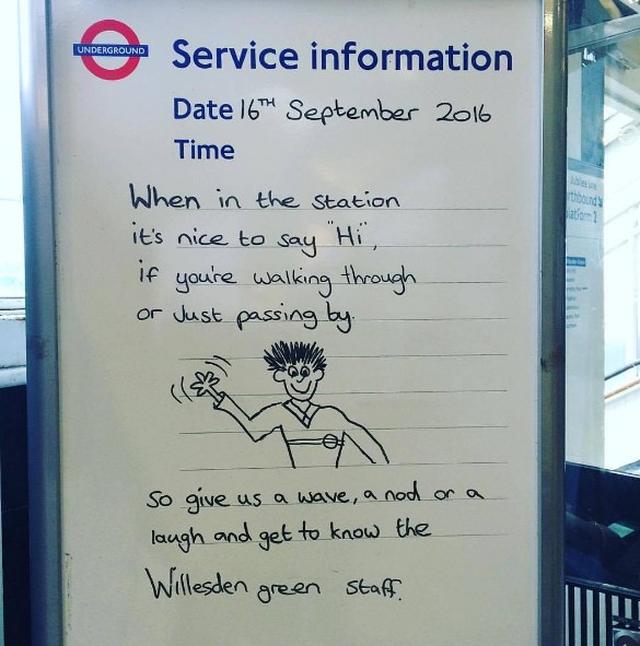 UNDERGROUND
Service information
Date 16TH September 2016
Time
When in the station
it's nice to say "Hi",
if you're walking through
or Just passing by.
so give us a wave, a nod or a
laugh and get to know the
Willesden green staff.
Jubilee Line
platform 2